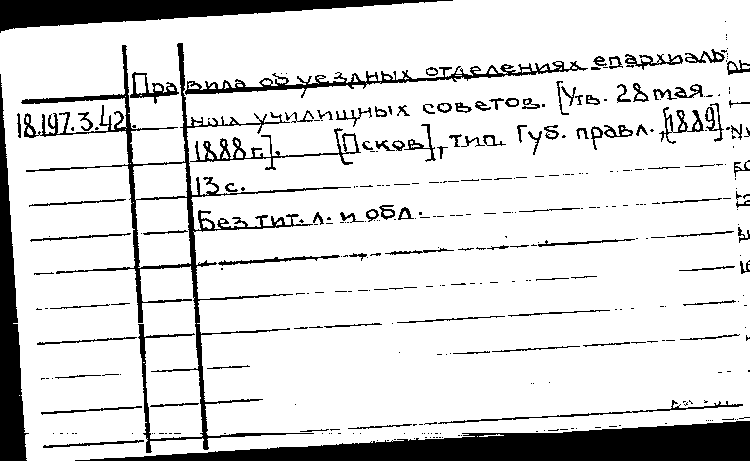 Правила об уездных отделениях епархиаль
18.197.3.42. ных училищных советов. [Утв. 28 мая
1888 г.]. [Псков], тип. Губ. правл., [1889].
13 с.
Без тит. л. и обл.